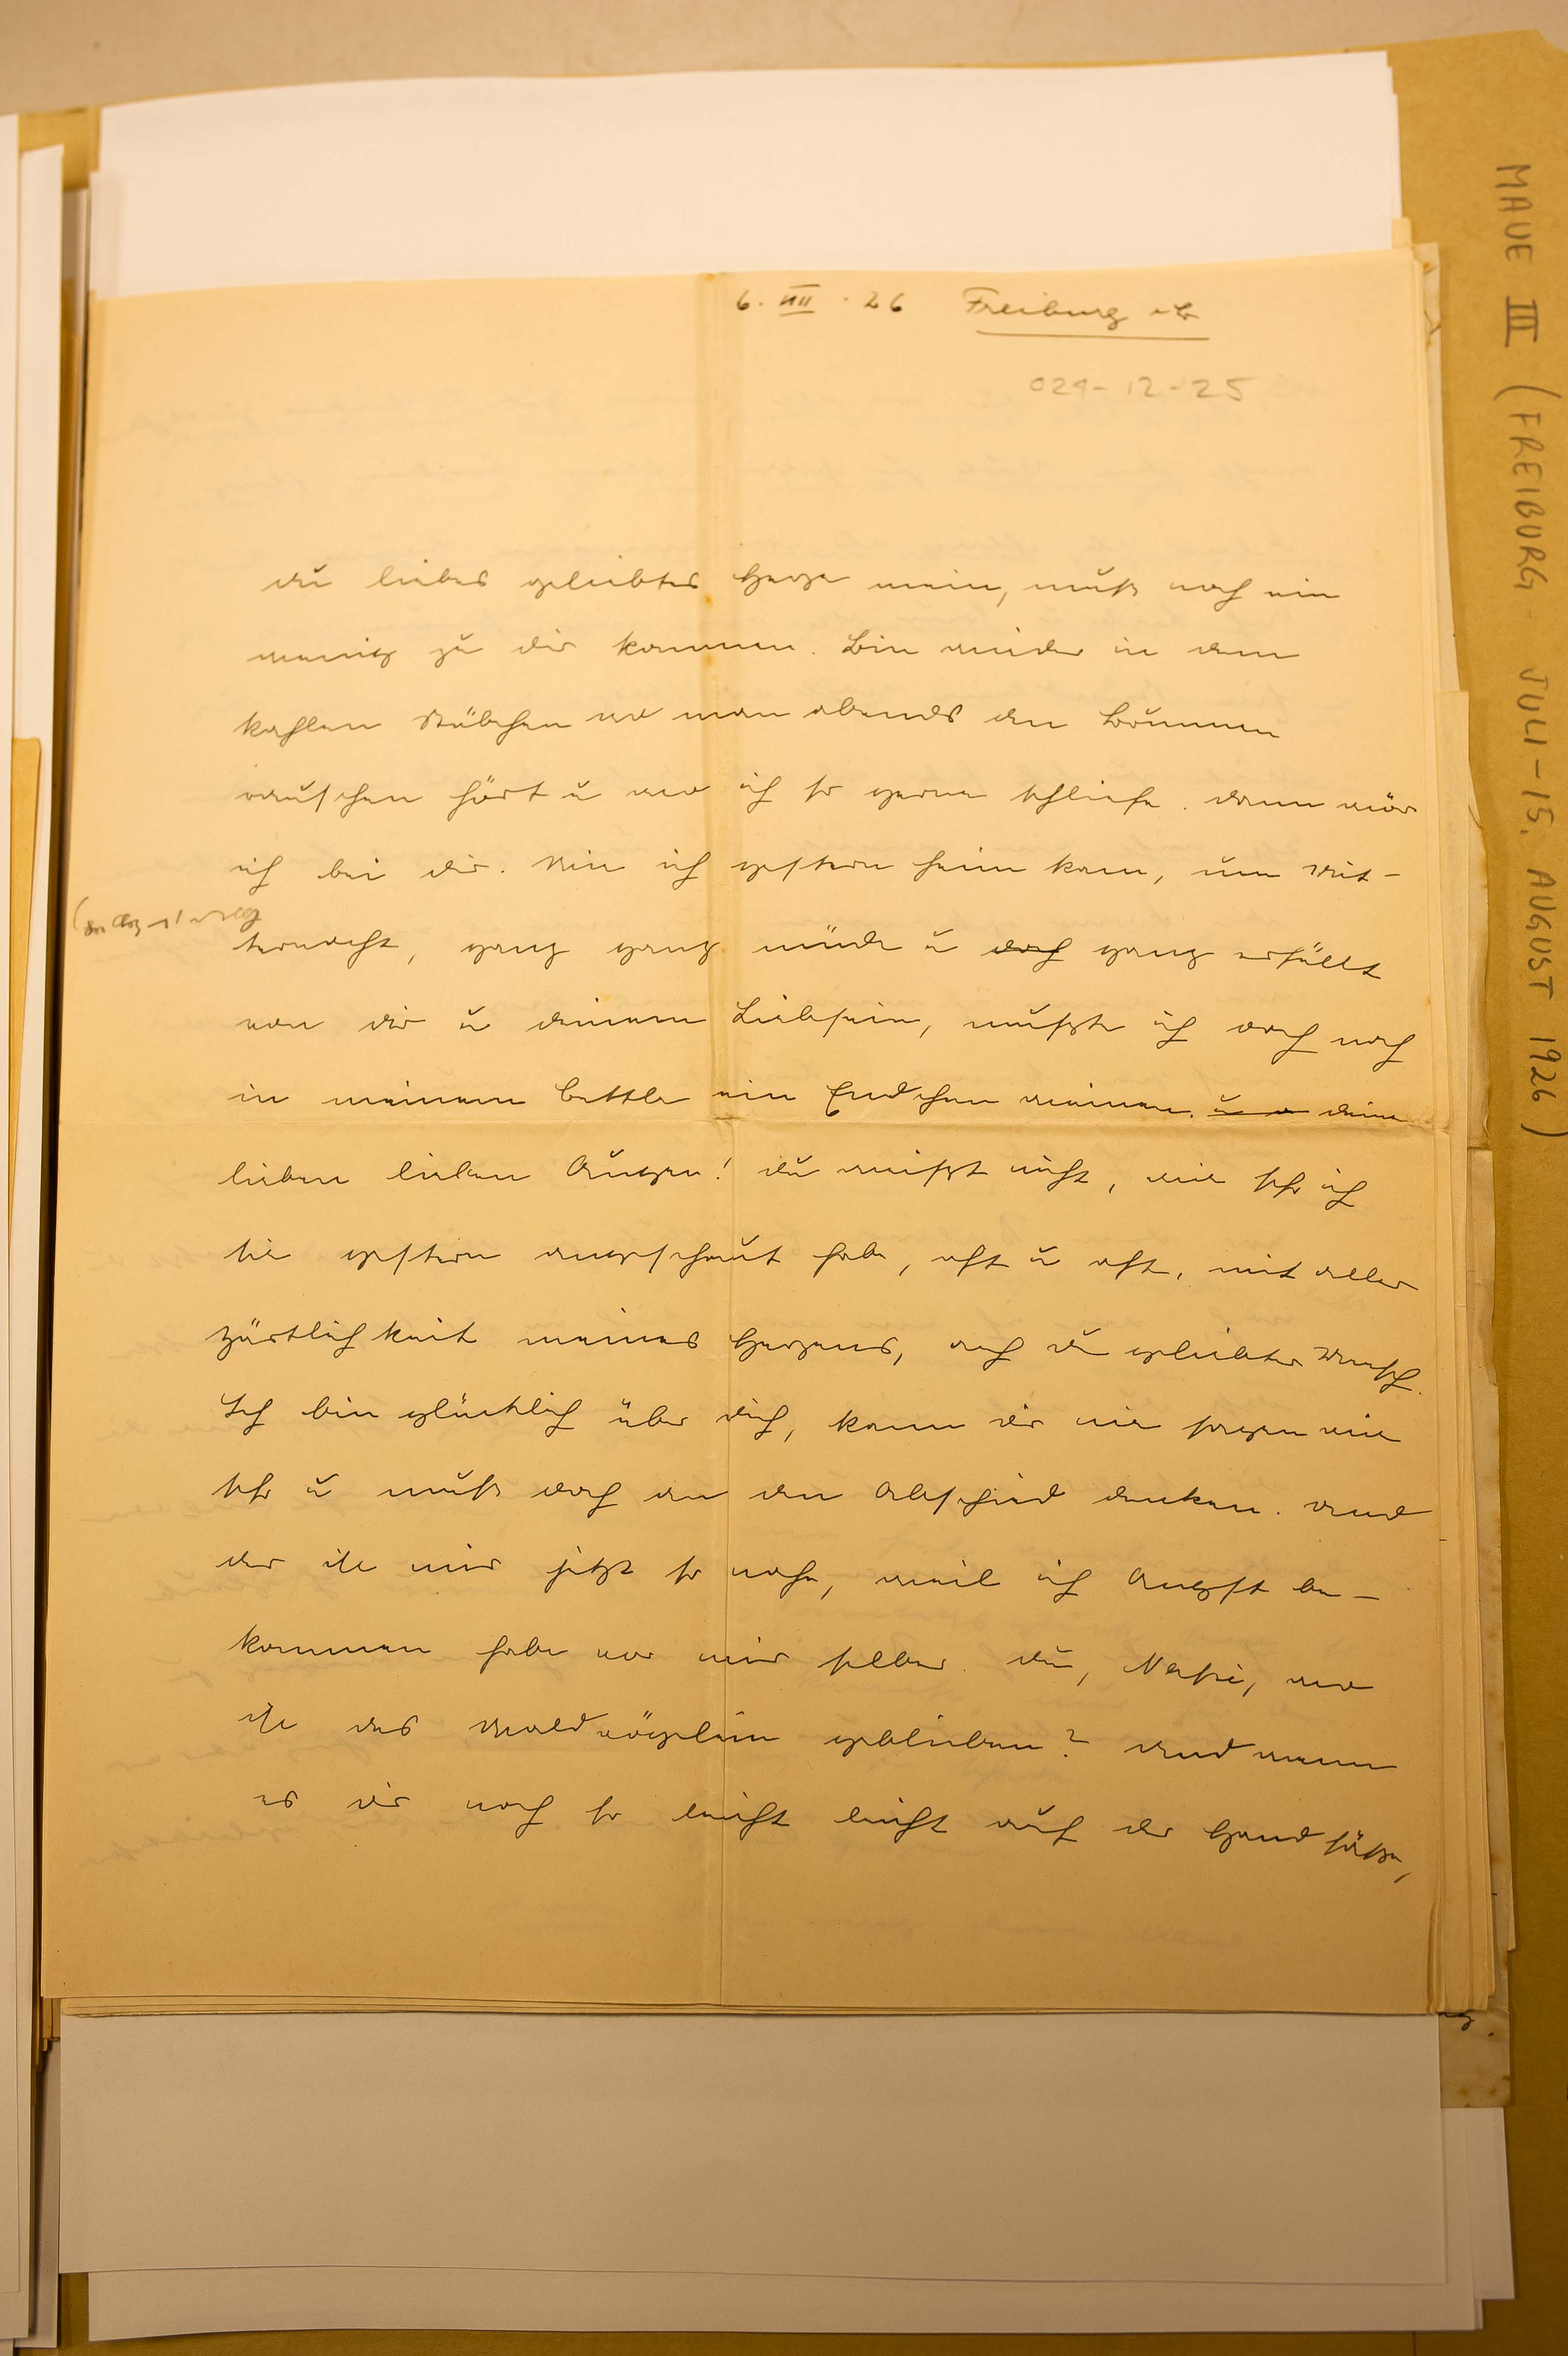 6. VIII. 26 Freiburg iB
024-12-25
du liebes geliebtes Herze mein, muß noch ein
wenig zu dir kommen. Bin wieder in dem
kahlen Stübchen wo man abends den Brunnen
rauschen hört u wo ich so gerne schliefe. dann wär
ich bei dir. Wie ich gestern heim kam, um Mit-
ternacht, ganz ganz müde u doch ganz erfüllt
von dir u deinem Liebsein, mußte ich doch noch
in meinem Bettle ein Endchen weinen. u deine
lieben lieben Augen! du weißt nicht, wie sehr ich
sie gestern angeschaut habe, oft u oft, mit aller
Zärtlichkeit meines Herzens, ach du geliebter Mensch.
Ich bin glücklich über dich, kann dir nie sagen wie
sehr u muß doch an den Abschied denken. und
der ist mir jetzt so nahe, weil ich Angst be-
kommen habe vor mir selber. du, wo
ist das Waldvögelein geblieben? Und wenn
es dir noch so leicht leicht auf der Hand säße,
MAUE III (FREIBURG - JULI - 15. AUGUST 1926)